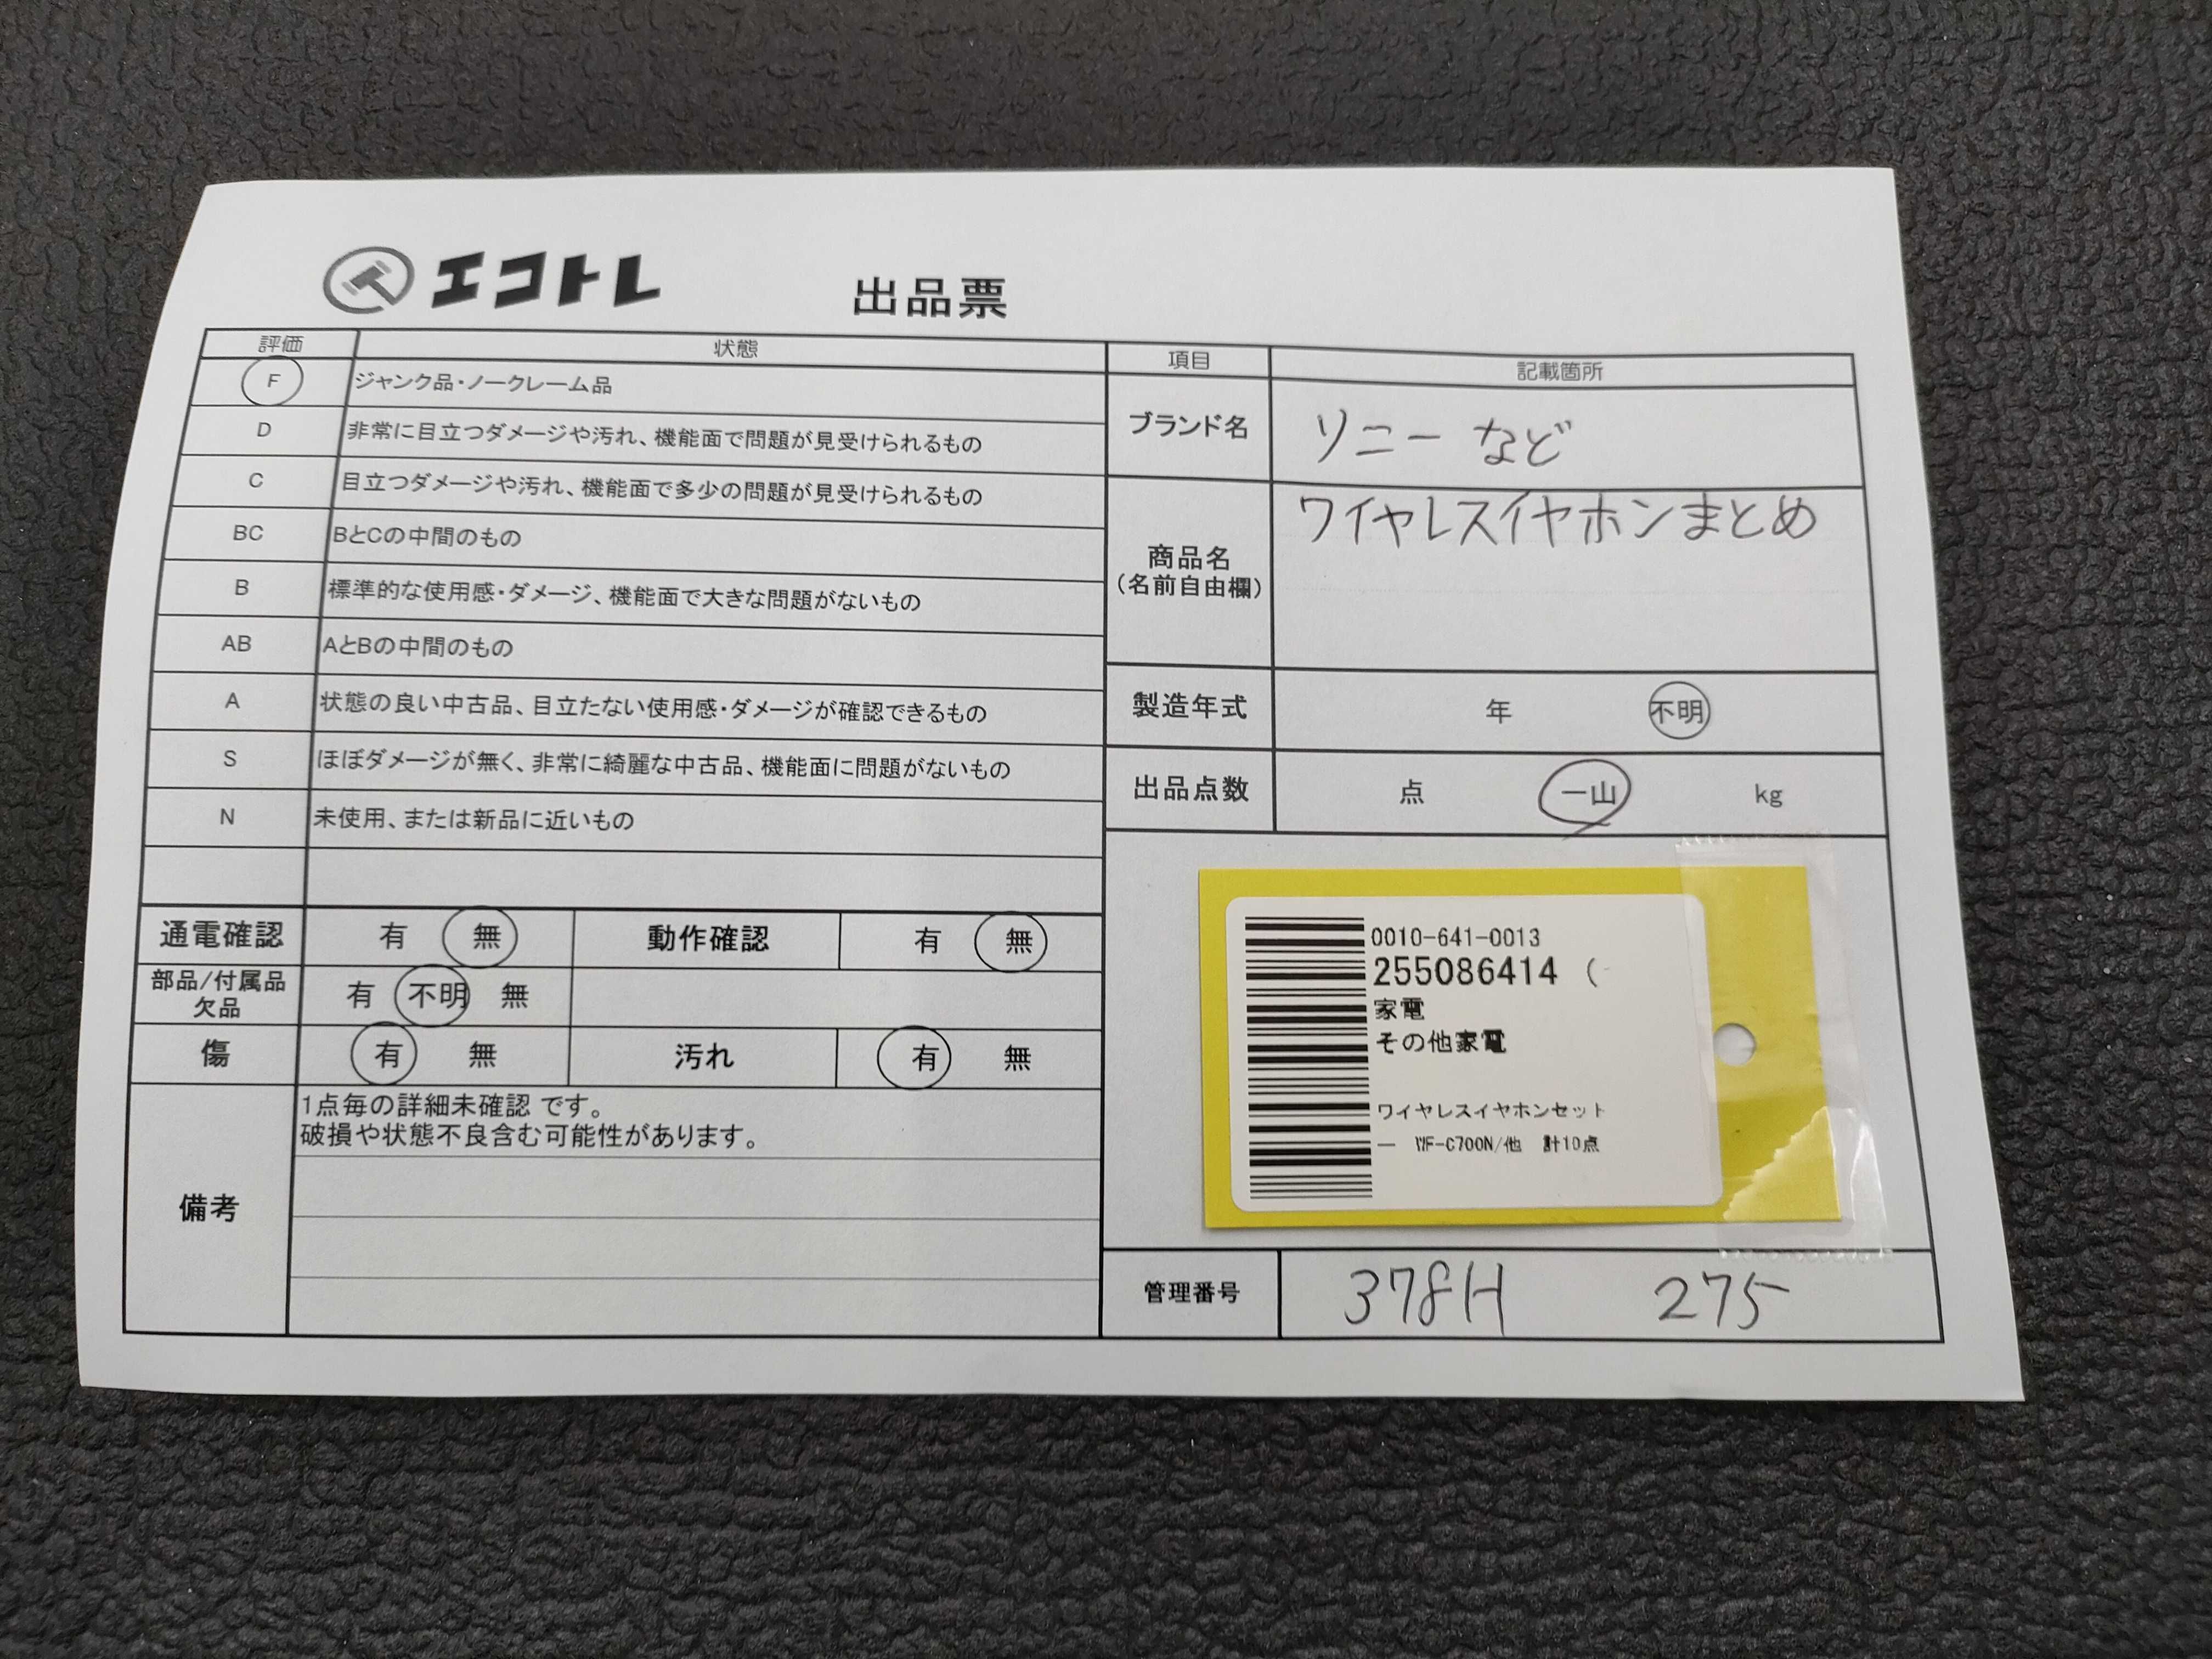 エコトレ
出品票
評価 状態
F ジャンク品・ノークレーム品
D 非常に目立つダメージや汚れ、機能面で問題が見受けられるもの
C 目立つダメージや汚れ、機能面で多少の問題が見受けられるもの
BC BとCの中間のもの
B 標準的な使用感・ダメージ、機能面で大きな問題がないもの
AB AとBの中間のもの
A 状態の良い中古品、目立たない使用感・ダメージが確認できるもの
S ほぼダメージが無く、非常に綺麗な中古品、機能面に問題がないもの
N 未使用、または新品に近いもの
通電確認 有 無 動作確認 有 無
部品/付属品
欠品
有 不明 無
傷 有 無 汚れ 有 無
備考
1点毎の詳細未確認 です。
破損や状態不良含む可能性があります。
項目 記載箇所
ブランド名 ソニー など
商品名
(名前自由欄)
ワイヤレスイヤホンまとめ
製造年式 年 不明
出品点数 点 一山 kg
0010-641-0013
255086414 (
家電
その他家電
ワイヤレスイヤホンセット
― WF-C700N/他 計10点
管理番号 378H 275